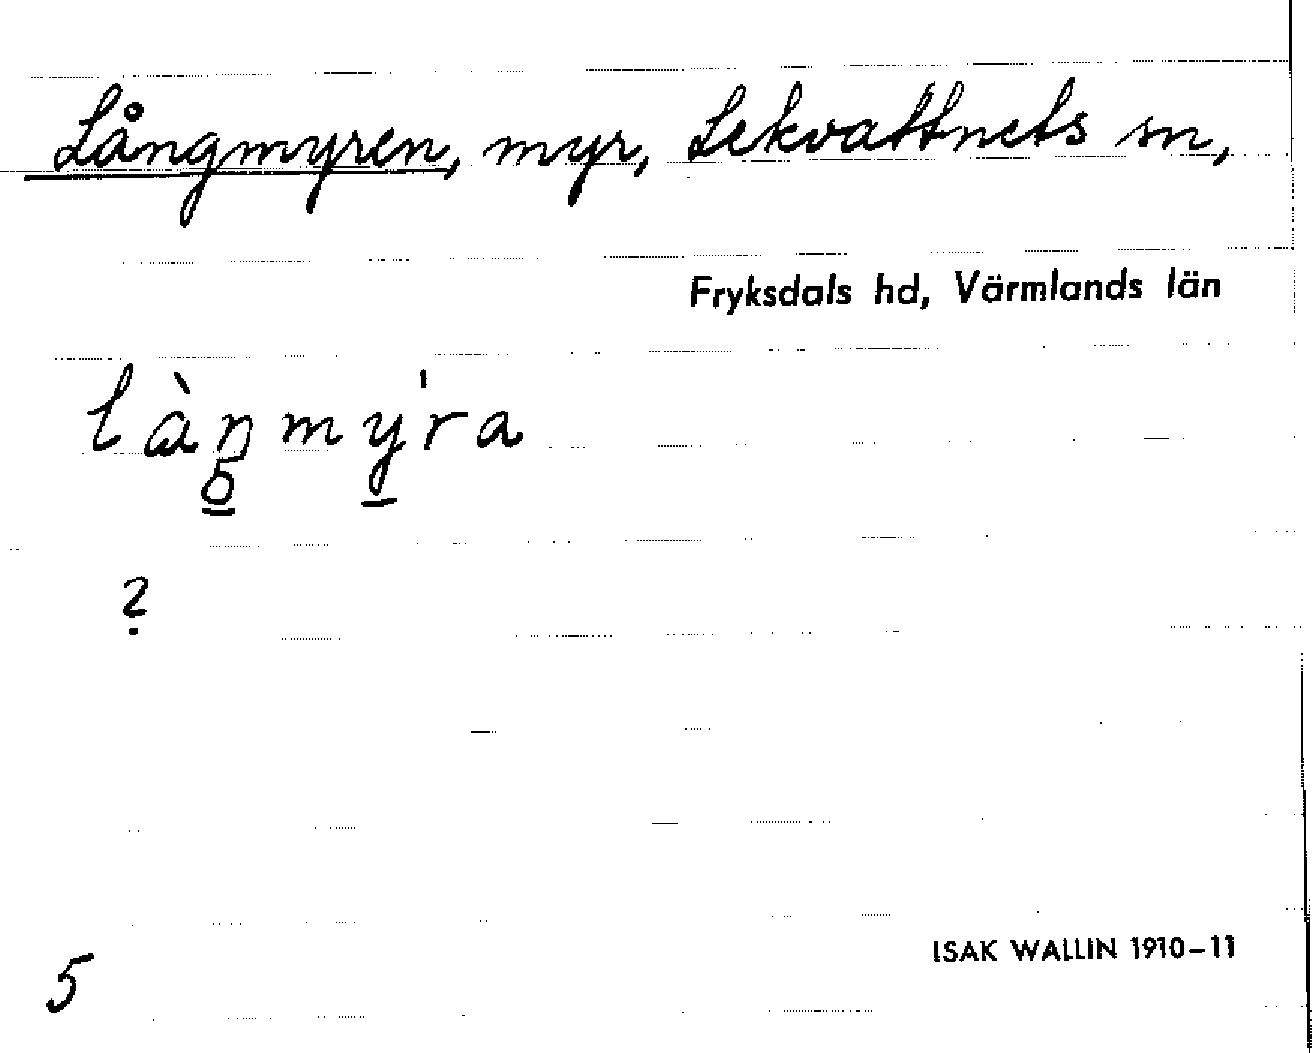 Långmyren, myr, Lekvattnets sn,
Fryksdals hd, Värmlands län
làŋmy̠'ra
?
ISAK WALLIN 1910-11
5